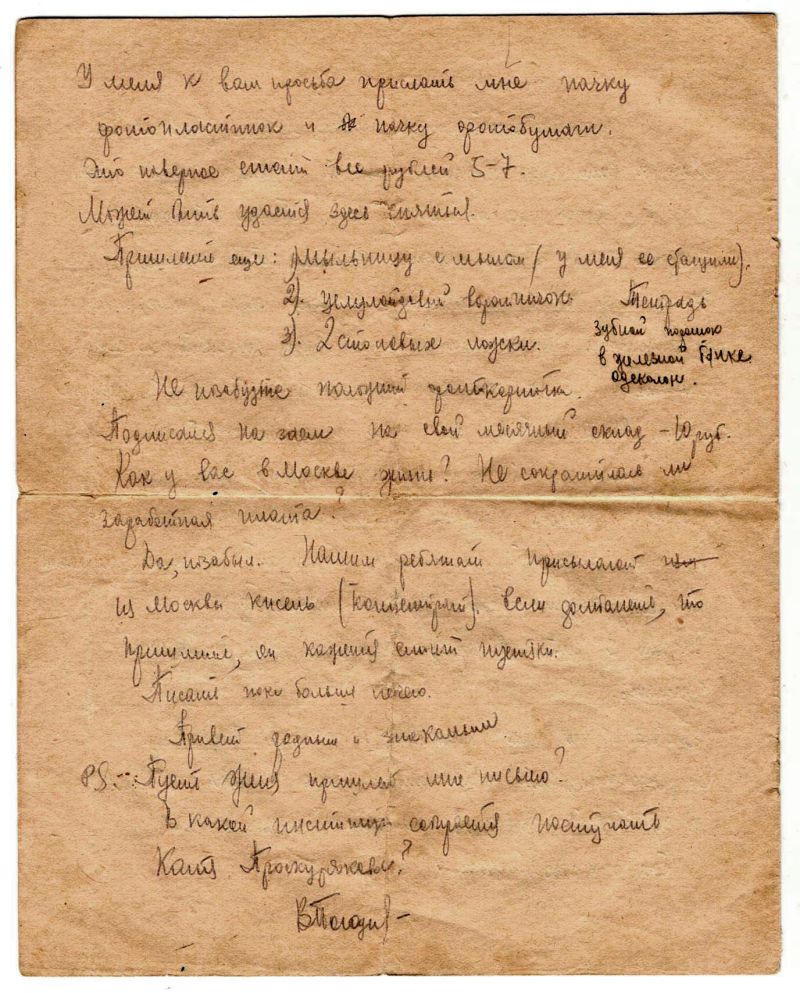 У меня к вам просьба прислать мне пачку
фотопластинок и пачку фотобумаги.
Это наверное стоит все рублей 5-7.
Может быть удастся здесь сняться.
Пришлите еще: 1) мыльницу с мылом (у меня ее стащили).
2). целулоидовый воротничок. Тетрадь
3). 2 столовых ложки. Зубной порошок
в железной банке
одеколон.
Не позабудте
Подписался на заем на свой месячный оклад -10 руб.
Как у вас в Москве жизнь? Не сократилась ли
заработная плата?
Да, позабыл. Нашим ребятам присылают
из Москвы кисель (концентрат). Если достанете, то
пришлите, он кажется стоит
Писать пока больше нечего.
Привет родным и знакомым
PS. Пусть Женя пришлет мне письмо?
В какой институт собирается поступать
Катя Проскурякова?